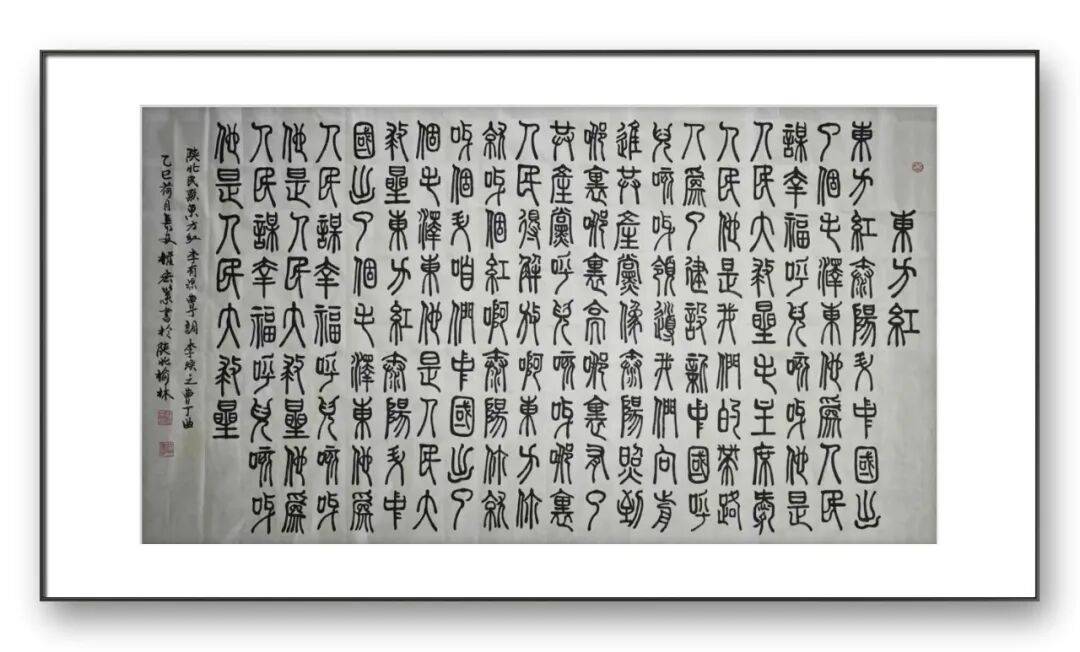 東方紅
東方紅泰陽升中國出
了個毛澤東他爲人民
謀幸福呼兒咳呀他是
人民大救星毛主席愛
人民他是我們的帶路
人爲了建設新中國呼
兒咳呀領導我們向前
進共產黨像泰陽照到
哪裏哪裏亮哪裏有了
共產黨呼兒咳呀哪裏
人民得解放啊東方你
就呀個紅啊泰陽你就
呀個升咱們中國出了
個毛澤東他是人民大
救星東方紅泰陽升中
國出了個毛澤東他爲
人民謀幸福呼兒咳呀
他是人民大救星他爲
人民謀幸福呼兒咳呀
他是人民大救星
陝北民歌東方紅 李有源 李焕之曹丁曲
乙巳荷月 書於陝北榆林